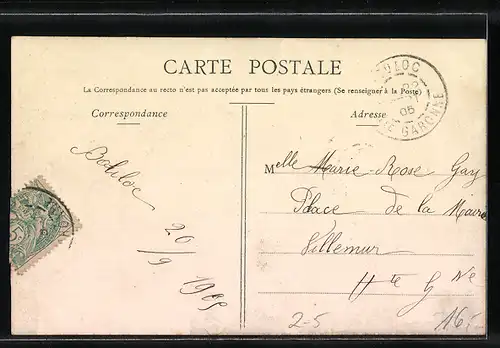 CARTE POSTALE
La Correspondance au recto n'est pas acceptée par tous les pays étrangers (Se renseigner à la Poste)
Correspondance
Adresse
Bouloc
20/9
1905
Mlle Marie-Rose Gay
Place de la Mairie
Villemur
Hte Gne
2-5
16,-
ULOC
05
GARONNE